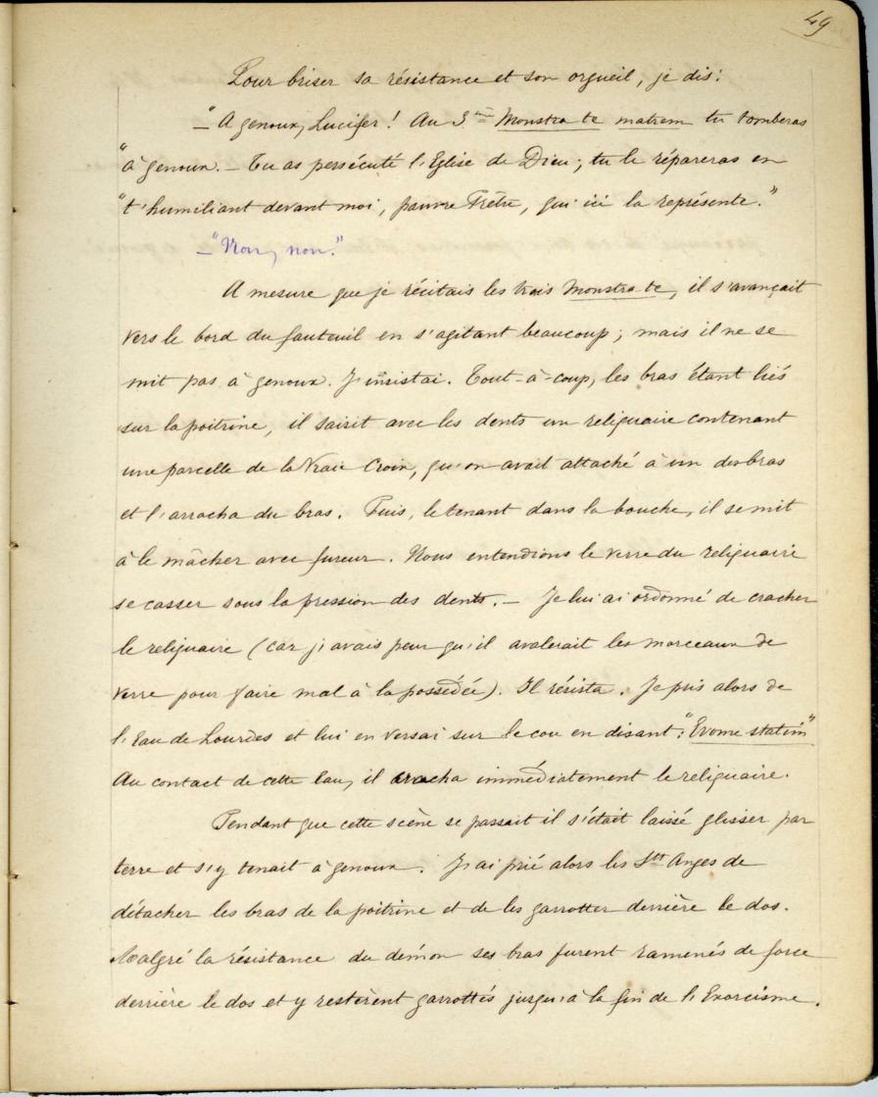 49
Pour briser sa résistance et son orgueil, je dis:
— "A genoux, Lucifer! Au 3ème Monstra te matrem tu tomberas
"à genoux. — Tu as persécuté l'Eglise de Dieu; tu le répareras en
"t'humiliant devant moi, pauvre Prêtre, qui ici la représente."
— "Non, non."
A mesure que je récitais les trois Monstra te, il s'avançait
vers le bord du fauteuil en s'agitant beaucoup; mais il ne se
mit pas à genoux. J'insistai. Tout-à-coup, les bras étant liés
sur la poitrine, il saisit avec les dents un reliquaire contenant
une parcelle de la Vraie Croix, qu'on avait attaché à un des bras
et l'arracha du bras. Puis, le tenant dans la bouche, il se mit
à le mâcher avec fureur. Nous entendions le verre du reliquaire
se casser sous la pression des dents. — Je lui ai ordonné de cracher
le reliquaire (car j'avais peur qu'il avalerait les morceaux de
verre pour faire mal à la possédée). Il résista. Je pris alors de
l'Eau de Lourdes et lui en versai sur le cou en disant: "Evome statim"
Au contact de cette Eau, il cracha immédiatement le reliquaire.
Pendant que cette scène se passait il s'était laissé glisser par
terre et s'y tenait à genoux. J'ai prié alors les Sts Anges de
détacher les bras de la poitrine et de les garrotter derrière le dos.
Malgré la résistance du démon ses bras furent ramenés de force
derrière le dos et y restèrent garrottés jusqu'à la fin de l'Exorcisme.